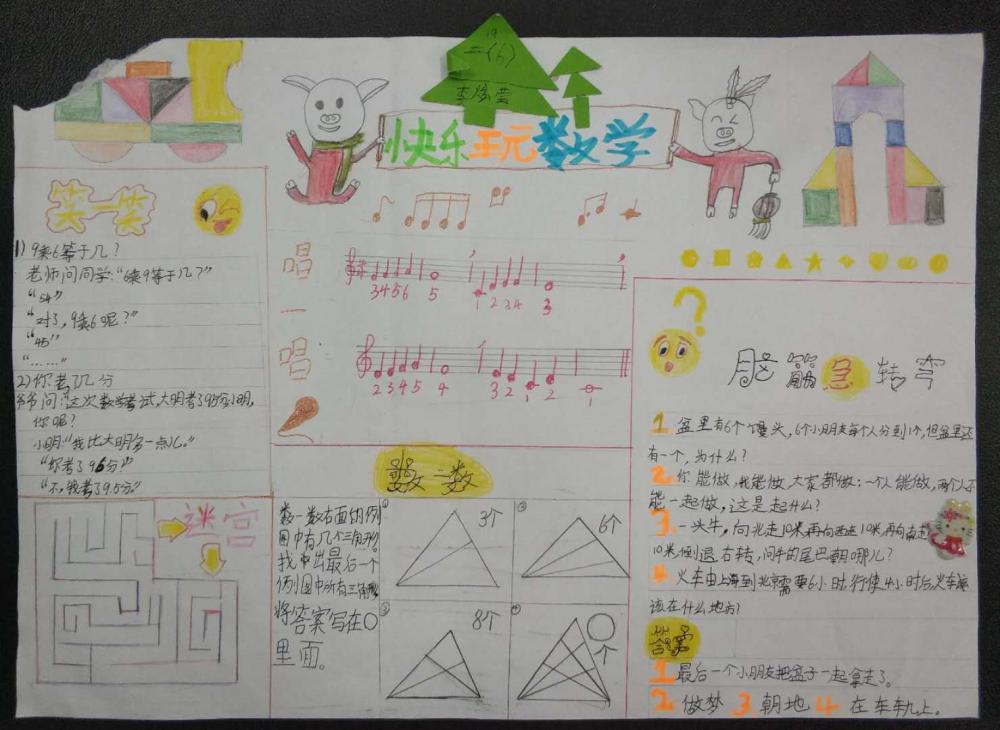 19
二(6)
快乐玩数学
笑一笑
1) 9乘6等于几？
老师问同学："6乘9等于几？"
"54"
"对了，9乘6呢？"
"45"
"……"
2)你考了几分
爷爷问：这次数学考试，大明考了95分小明，
你呢？
小明："我比大明多一点儿。"
"你考了96分？"
"不，我考了9.5分"
迷宫
唱
一
唱
3456 5 1 2 34 3
2345 4 3 2 1 2 1
数一数
数一数右面的例
图中有几个三角形。
找出最后一个
例图中所有三角形
将答案写在○
里面。
① 3个
② 6个
③ 8个
④ 个
?
脑筋急转弯
1 盆里有6个馒头，6个小朋友每个人分到1个，但盆里还
有一个，为什么？
2 你能做，我能做，大家都做；一个人能做，两个人不
能一起做，这是起什么？
3 一头牛，向北走10米再向西走10米，再向南走
10米倒退右转，问牛的尾巴朝哪儿？
4 火车由上海到北京需要6小时，行使4小时后，火车
该在什么地方？
答案
1 最后一个小朋友把盆子一起拿走了。
2 做梦 3 朝地 4 在车轨上。